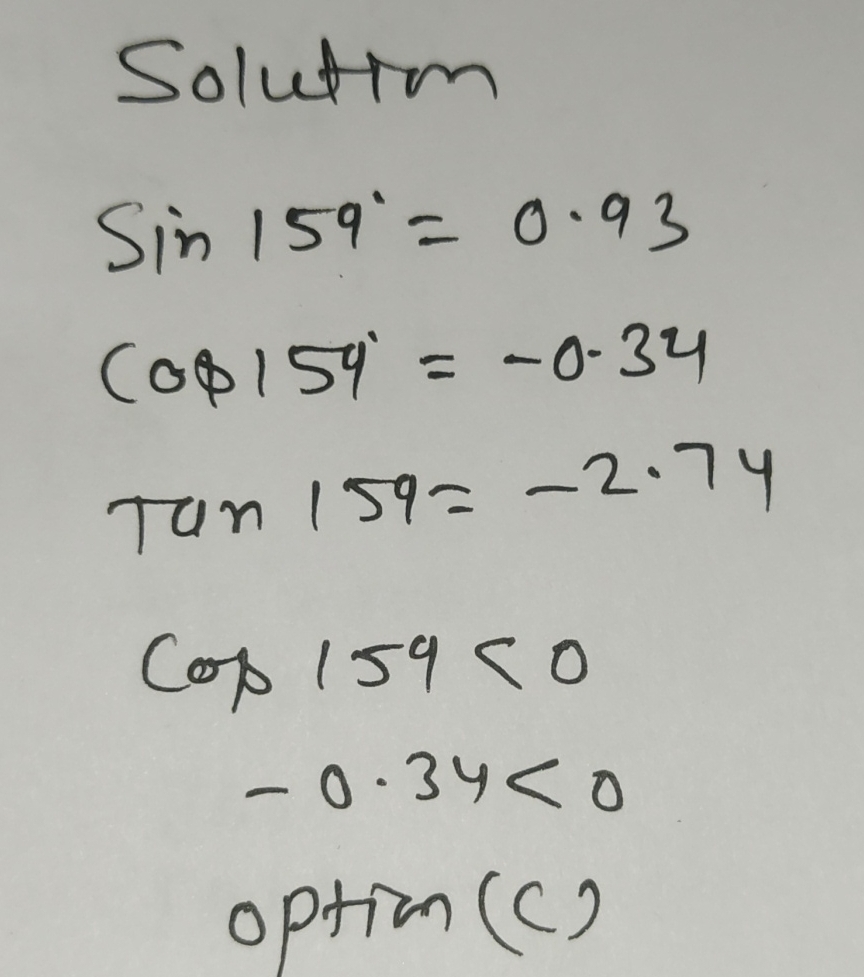 Solution
Sin 159° = 0.93
Cos 159° = -0.34
Tan 159 = -2.74
Cos 159 < 0
-0.34 < 0
option (C)